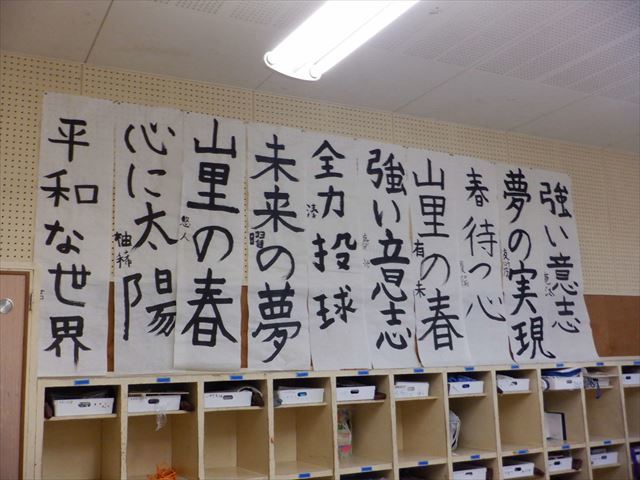 強い意志
夢の実現
春待つ心
山里の春
有未
強い意志
全力投球
湊
未来の夢
曜
山里の春
悠人
心に太陽
柚稀
平和な世界